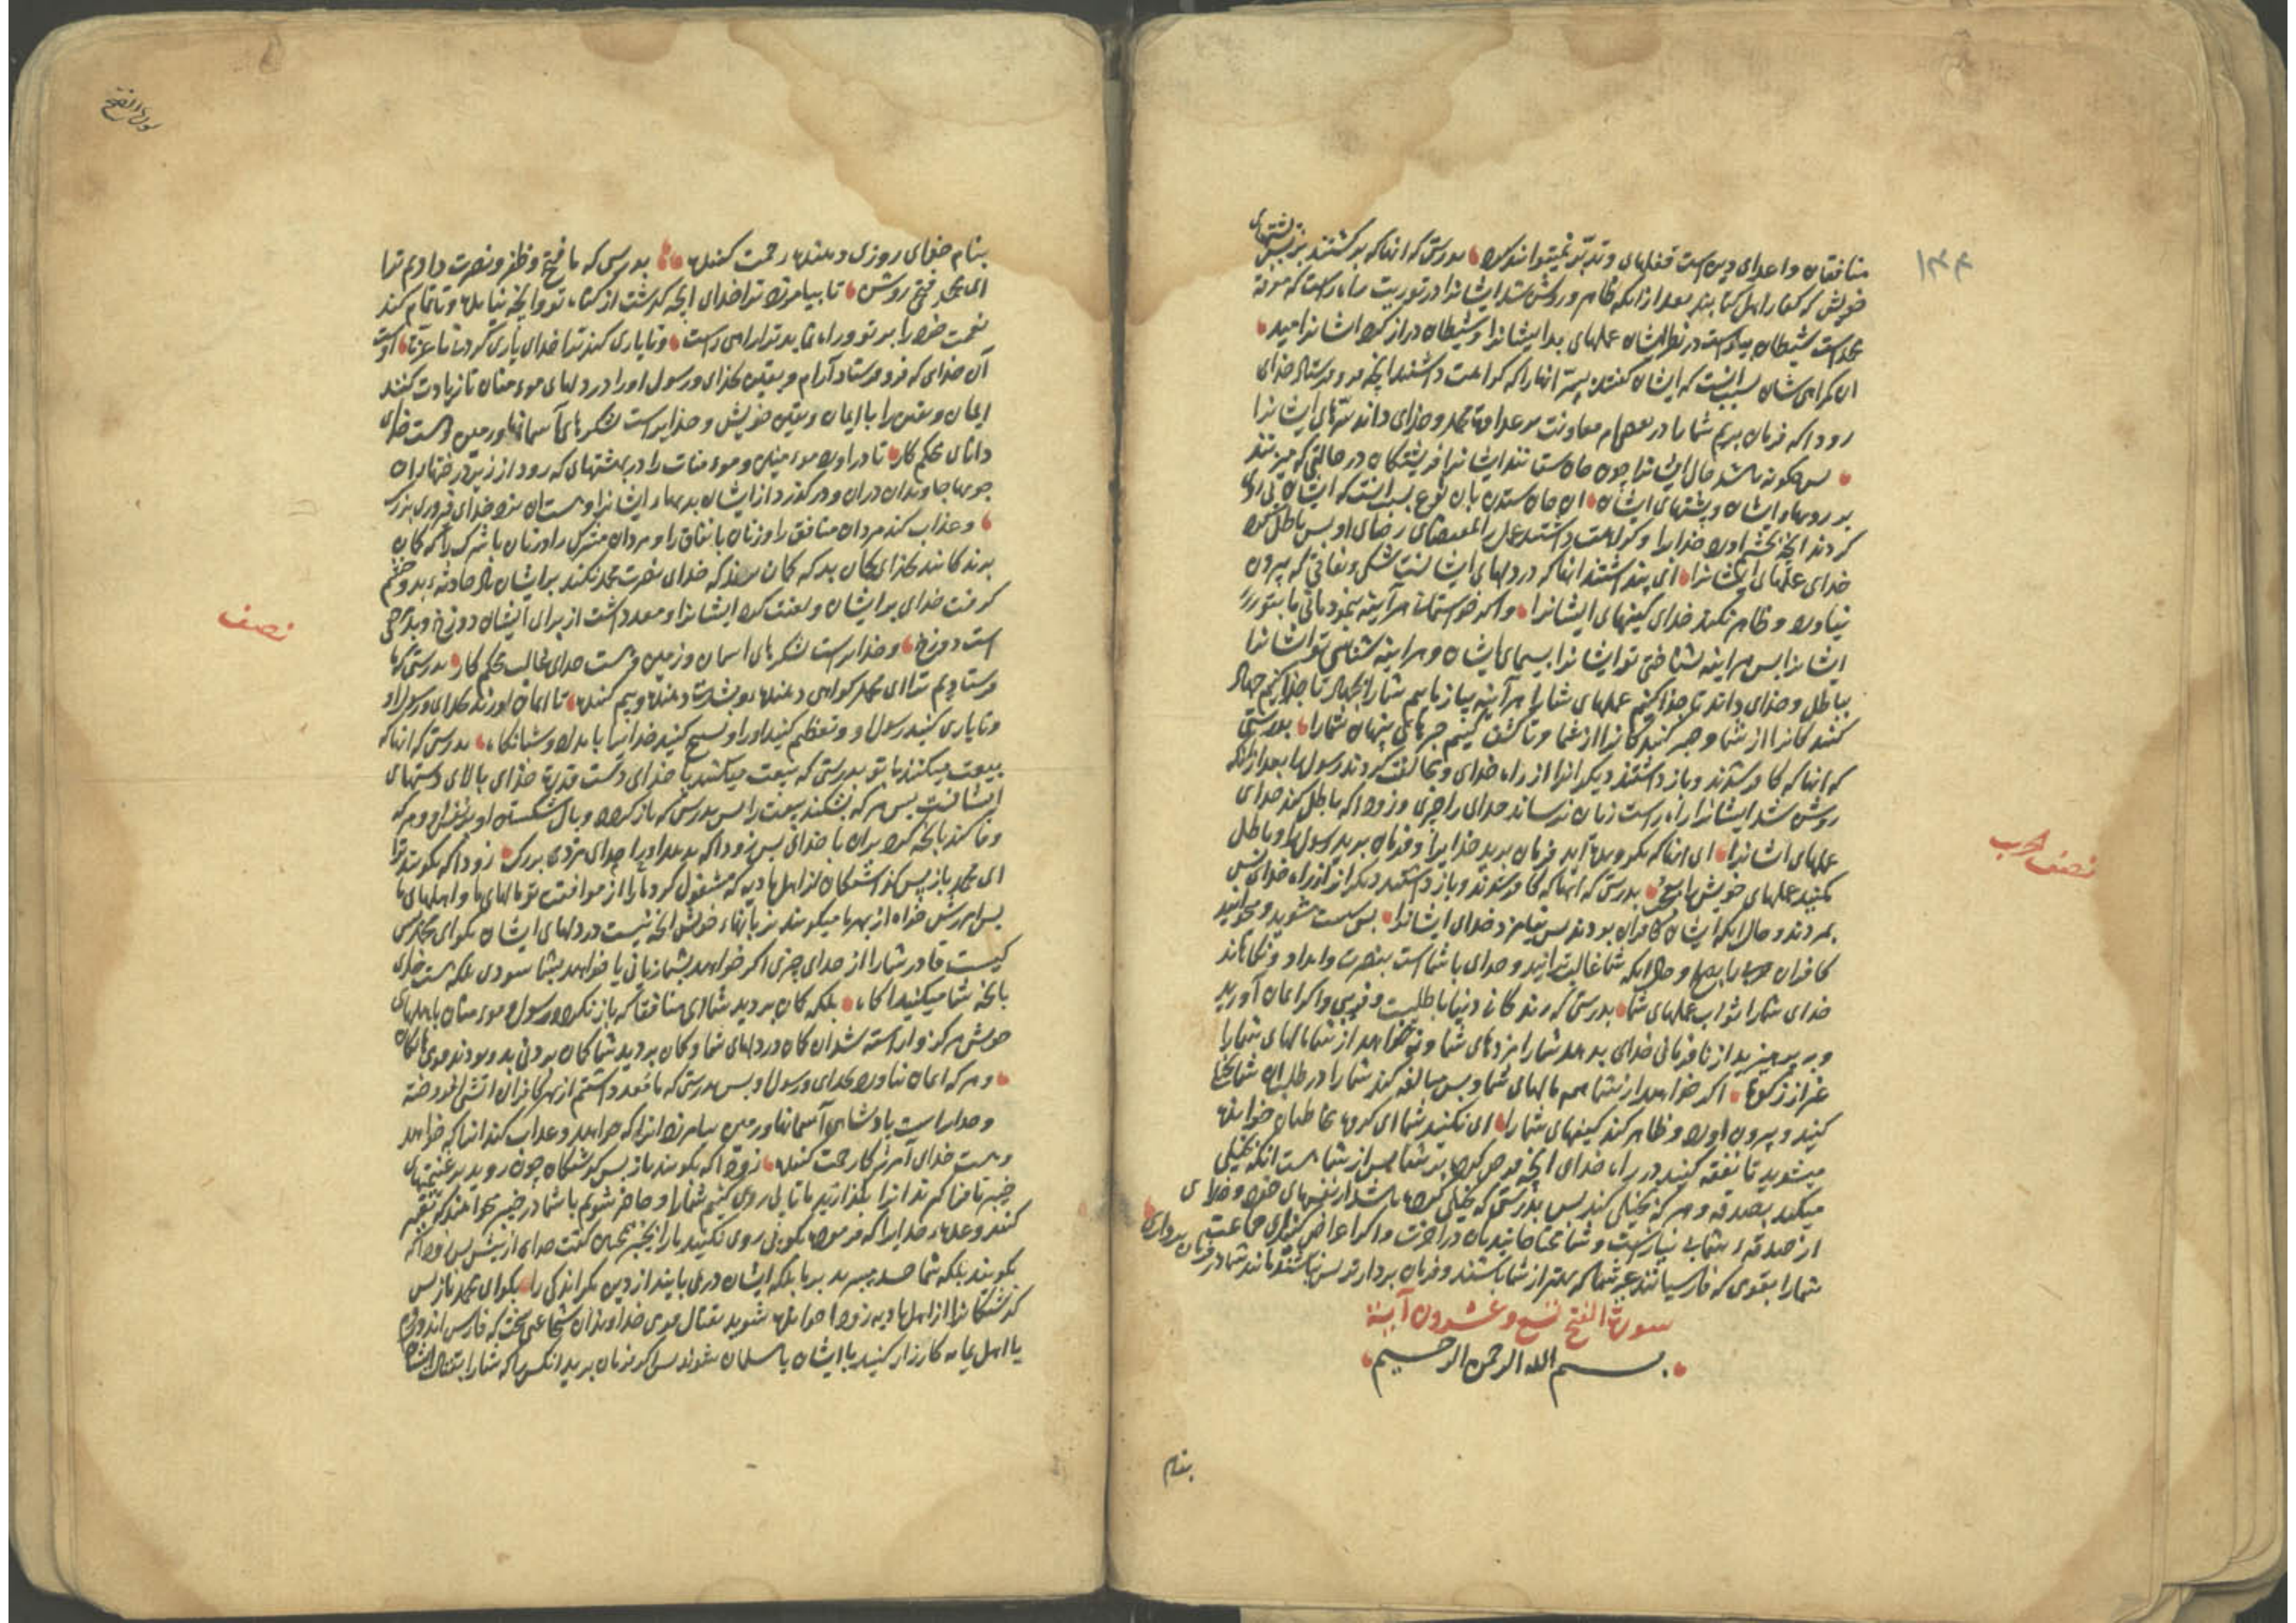 ۱۴۴
منافقان و اعدای دین است قفلهای و تدبّر نمیتوانند کرد بدرستی که آنها که برگشتند بر پشتهای
خویش که کفار اهل کتابند بعد از آنکه ظاهر و روشن شد ایشانرا در توریت راه راست که معرفة
محمد است شیطان بیاراست در نظر ایشان عملهای بد ایشانرا و شیطان دراز کرد ایشانرا امید
این گمراهی شان بسبب آنست که ایشان گفتند پس آنها را که کراهت داشتند آنچه فرو فرستاد خدای
زود که فرمان بریم شما را در بعضی امر معاونت بر عداوت محمد و خدای داند سرّهای ایشانرا
پس چگونه باشد حال ایشان چون جان ستانند ایشانرا فریشتگان در حالتی که میزنند
بر رویهاء ایشان و پشتهای ایشان این جان ستدن بآن نوع بسبب آنست که ایشان پی روی
کردند آنچه بخشم آورد خدایرا و کراهت داشتند عمل را بمقتضای رضای او پس باطل کرد
خدای عملهای ایشانرا ای پنداشتند آنها که در دلهای ایشانست شکی و نفاقی که بیرون
نیاورد و ظاهر نکند خدای کینهای ایشانرا و اگر خواستمان هر آینه بنمودمانی ما بتو
ایشانرا پس هر آینه بشناختی تو ایشانرا بسیمای ایشان و هر آینه شناسی تو ایشانرا
بباطل و خدای داند عملهای شما را هر آینه بیازماییم شما را بجهاد تا جدا کنیم جهاد
کنندگانرا از شما و صبر کنندگانرا از غما و تا کشف کنیم خبرهای پنهان شما را بدرستی
که آنها که کافر شدند و باز داشتند دیگرانرا از راه خدای و مخالفت کردند رسول را بعد از آنکه
روشن شد ایشانرا راه راست زیان نرساند خدای را چیزی و زود که باطل کند خدای
عملهای ایشانرا ای آنها که بگرویده‌اید فرمان برید خدایرا و فرمان برید رسول او را و باطل
مکنید عملهای خویش را بدرستی که آنها که کافر شدند و باز داشتند دیگرانرا از راه خدای پس
بمردند و حال آنکه ایشان کافران بودند پس نیامرزد خدای ایشانرا پس سست مشوید و مخوانید
کافران را بصلح و حال آنکه شما غالب‌ترانید و خدای با شماست بنصرت و امداد و نکاهاند
خدای شما را ثواب عملهای شما بدرستی که زندگانی دنیا باطلیست و فریبی و اگر ایمان آورید
و بپرهیزید از نافرمانی خدای بدهد شما را مزدهای شما و نخواهد از شما مالهای شما را
غیر از زکوة اگر خواهد از شما همه مالهای شما و پس مبالغه کند شما را در طلب آن شما بخل
کنید و بیرون آورد و ظاهر کند کینهای شما را ای نکنید شما ای گروه مخاطبان خوانده
میشوید تا نفقه کنید در راه خدای آنچه فرض کرده بر شما پس از شما هست آنکه بخیلی
میکند بصدقه و هر که بخیلی کند پس بدرستی که بخیلی کرده باشد از نفسهای خود و خدای
از صدقه شما بی نیاز است و شما محتاجانید بآن در آخرت و اگر اعراض کنید ای جماعت از فرمان برداری
شما را بقومی که فارسیانند غیر شما که بهتر از شما باشند و فرمان بردارتر پس نباشند مانند شما در
سورة الفتح تسع و عشرون آیة
بسم الله الرحمن الرحیم
بنام
نصف الحزب
سورة الفتح
بنام خدای روزی دهنده رحمت کننده بدرستی که ما فتح و ظفر و نصرت دادیم ترا
ای محمد فتحی روشن تا بیامرزد ترا خدای آنچه گذشت از گناه تو و آنچه نیامده و تا تمام کند
نعمت خود را بر تو و راه نماید ترا راهی راست و تا یاری کند ترا خدای یاری کردنی با عزت اوست
آن خدای که فرو فرستاد آرام و یقین بخدای و رسول او را در دلهای مومنان تا زیادت کنند
ایمان و یقین را با ایمان و یقین خویش و خدایراست لشکرهای آسمانها و زمین و هست خدای
دانای محکم کار تا در آورد مومنین و مومنات را در بهشتهای که رود از زیر درختها بران
جویها جاویدان دران و در گذرد از ایشان بدیهاء ایشانرا و هست آن نزد خدای فیروزی بزرگ
و عذاب کند مردان منافق را و زنان با نفاق را و مردان مشرک را و زنان با شرک را که گمان
برندگانند بخدای گمان بد که گمان بردند که خدای نصرت محمد نکند بر ایشان باد حادثه بد و خشم
گرفت خدای بر ایشان و لعنت کرد ایشانرا و معد داشت از برای ایشان دوزخ و بد مرجعی
است دوزخ و خدایراست لشکرهای آسمان و زمین و هست خدای غالب محکم کار بدرستی که ما
فرستادیم ترا ای محمد گواهی دهنده و بشارت دهنده و بیم کننده تا ایمان آورند بخدای و رسول او
و تا یاری کنید رسول او و تعظیم کنید او را و تسبیح کنید خدایرا بامداد و شبانگاه بدرستی که آنها که
بیعت میکنند با تو بدرستی که بیعت میکنند با خدای دست قدرت خدای بالای دستهای
ایشانست پس هر که بشکند بیعت را پس بدرستی که باز گردد وبال شکستن او بر نفس او و هر که
وفا کند بآنچه کرد بران با خدای پس زود که بدهد او را خدای مزدی بزرگ زود که گویند ترا
ای محمد باز پس گذاشتگان از اهل بادیه که مشغول کرد ما را از موافقت تو مالهای ما و اهلهای ما
پس آمرزش خواه از بهر ما میگویند بزبانهاء خویش آنچه نیست در دلهای ایشان بگو ای محمد پس
کیست قادر شما را از خدای چیزی اگر خواهد بشما زیانی یا خواهد بشما سودی بلکه هست خدای
بآنچه شما میکنید آگاه بلکه گمان بردید شما ای منافقان که باز نگردد رسول و مومنان باهلهای
خویش هرگز و آراسته شد آن گمان در دلهای شما و گمان بردید شما گمان بردنی بد و بودند قومی هالکان
و هر که ایمان نیاورد بخدای و رسول او پس بدرستی که ما معد داشتیم از بهر کافران آتشی افروخته
و خدایراست پادشاهی آسمانها و زمین بیامرزد آنرا که خواهد و عذاب کند آنرا که خواهد
و هست خدای آمرزگار رحمت کننده زود که گویند باز پس گذاشتگان چون روید بر غنیمتهای
خیبر تا فرا گیرند آنرا بگذارید ما را تا پی روی کنیم شما را و حاضر شویم با شما در خیبر میخواهند که تغییر
کنند وعده خدایرا که فرموده بگو پی روی نکنید ما را بخیبر همچنین گفت خدای از پیش پس زود که
گویند بلکه شما حسد میبرید بر ما بلکه ایشان در نمی یابند از دین مگر اندکی را بگو ای محمد باز پس
گذشتگانرا از اهل بادیه زود خوانده شوید بقتال قومی خداوندان شجاعتی سخت که فارس اند و روم
یا اهل یمامه کارزار کنید با ایشان یا مسلمان شوند پس اگر فرمان برید آنکس را که شما را بقتال ایشان
نصف